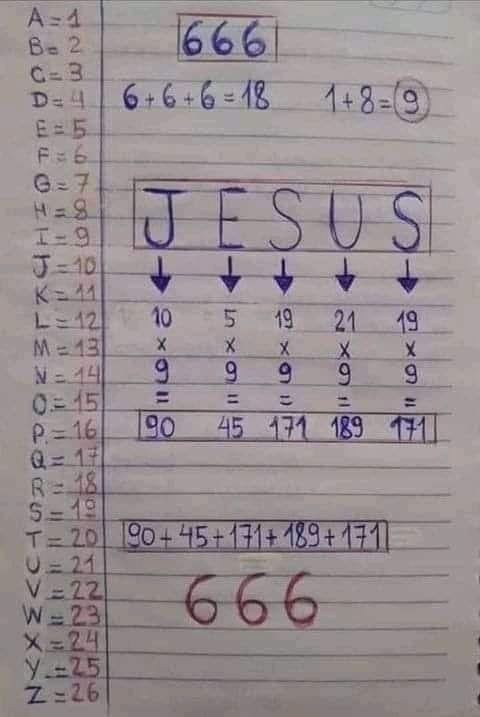 A = 1
B = 2
C = 3
D = 4
E = 5
F = 6
G = 7
H = 8
I = 9
J = 10
K = 11
L = 12
M = 13
N = 14
O = 15
P = 16
Q = 17
R = 18
S = 19
T = 20
U = 21
V = 22
W = 23
X = 24
Y = 25
Z = 26
666
6+6+6=18 1+8=9
JESUS
10 5 19 21 19
x x x x x
9 9 9 9 9
= = = = =
90 45 171 189 171
90+45+171+189+171
666